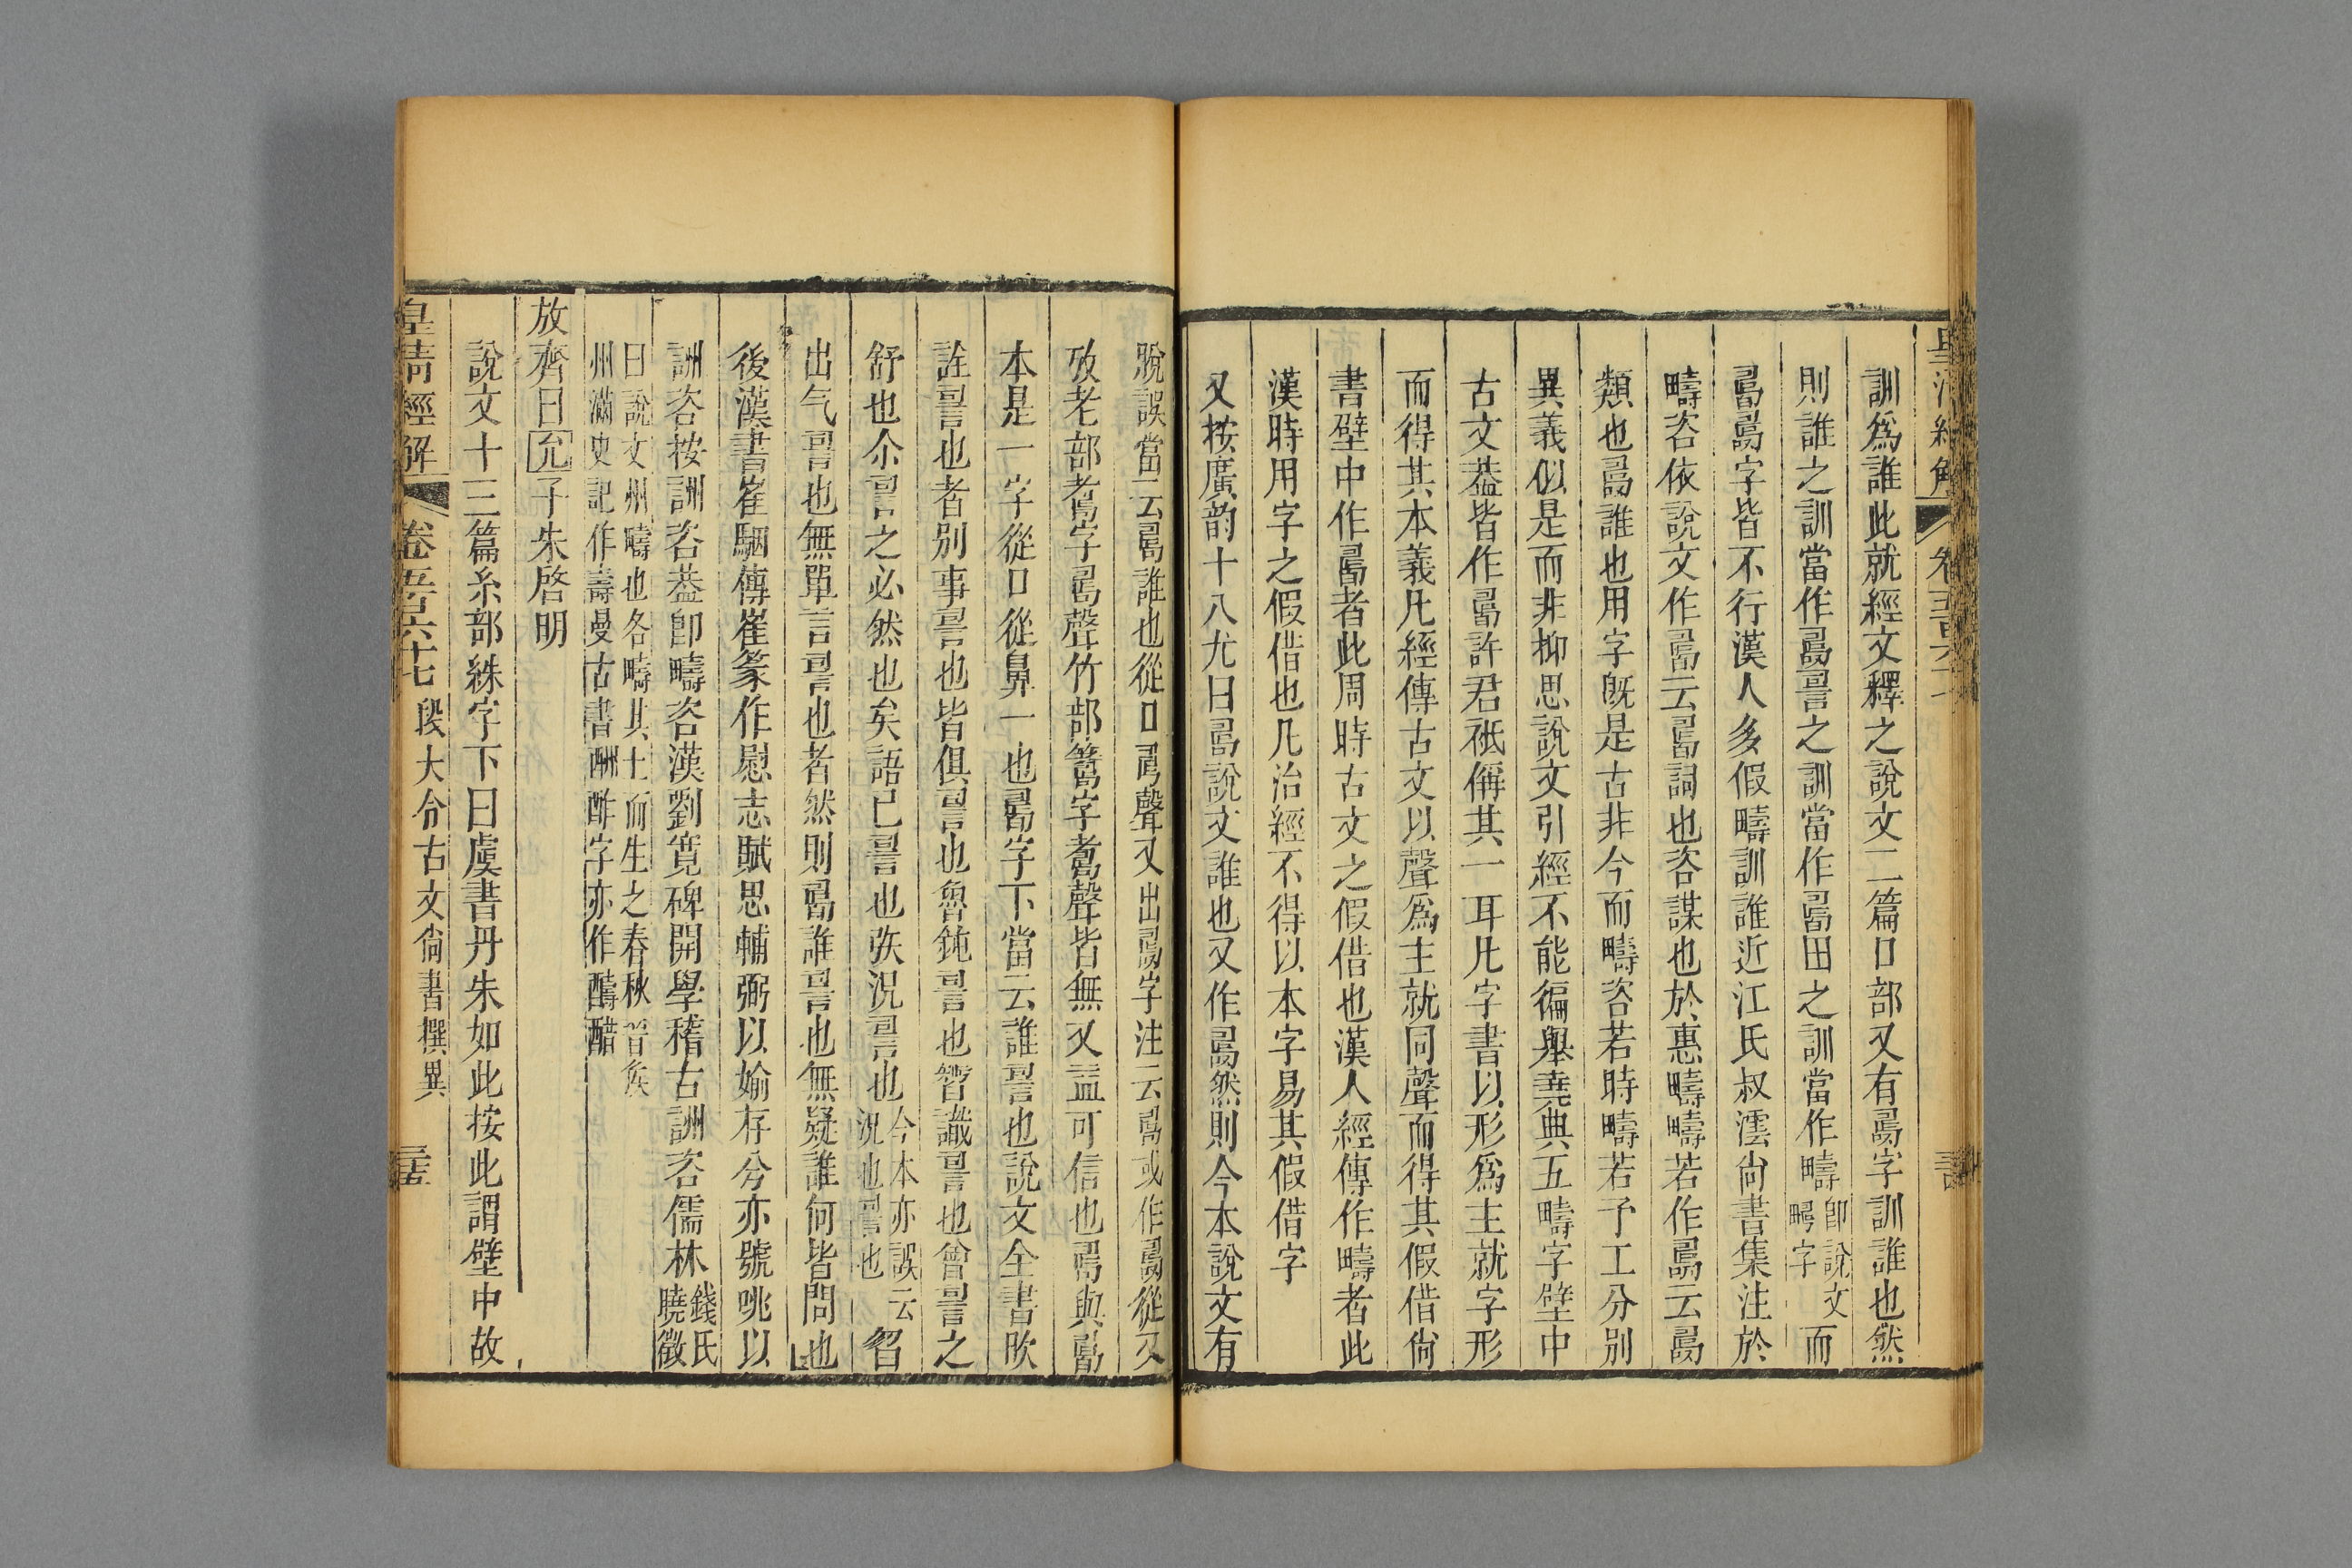 訓爲誰此就經文釋之說文二篇口部又有𠷎字訓誰也然
則誰之訓當作𠷎䛐之訓當作𠷎田之訓當作疇卽說文𤲮字而
𠷎𠷎字皆不行漢人多假疇訓誰近江氏叔澐尙書集注於
疇咨依說文作𠷎云𠷎詞也咨謀也於惠疇疇若作𠷎云𠷎
類也𠷎誰也用字旣是古非今而疇咨若時疇若予工分別
異義似是而非抑思說文引經不能徧舉堯典五疇字壁中
古文葢皆作𠷎許君祗偁其一耳凡字書以形爲主就字形
而得其本義凡經傳古文以聲爲主就同聲而得其假借尙
書壁中作𠷎者此周時古文之假借也漢人經傳作疇者此
漢時用字之假借也凡治經不得以本字易其假借字
又按廣韵十八尤曰𠷎說文誰也又作𠷎然則今本說文有
脫誤當云𠷎誰也從口𠃬聲又出𠷎字注云𠷎或作𠷎從又
攷老部𦓂字𠷎聲竹部籌字𦓂聲皆無又盆可信也𠷎與𠷎
本是一字從口從鼻一也𠷎字下當云誰䛐也說文全書欥
詮䛐也者別事䛐也皆俱䛐也魯鈍䛐也𥏼識䛐也曾䛐之
舒也尒䛐之必然也矣語已䛐也矤況䛐也今本亦誤云況也䛐也㕯
出气䛐也無單言䛐也者然則𠷎誰䛐也無疑誰何皆問也
後漢書崔駰傳崔篆作慰志賦思輔弼以媮存兮亦號咷以
詶咨按詶咨葢卽疇咨漢劉寬碑開學稽古詶咨儒林錢氏曉徵
曰說文州疇也各疇其土而生之春秋晉矦州滿史記作壽曼古書酬酢字亦作醻醋
放齊曰允子朱啓明
說文十三篇糸部絑字下曰虞書丹朱如此按此謂壁中故
皇淸經解 卷五百六十七 段大令古文尙書撰異 三五